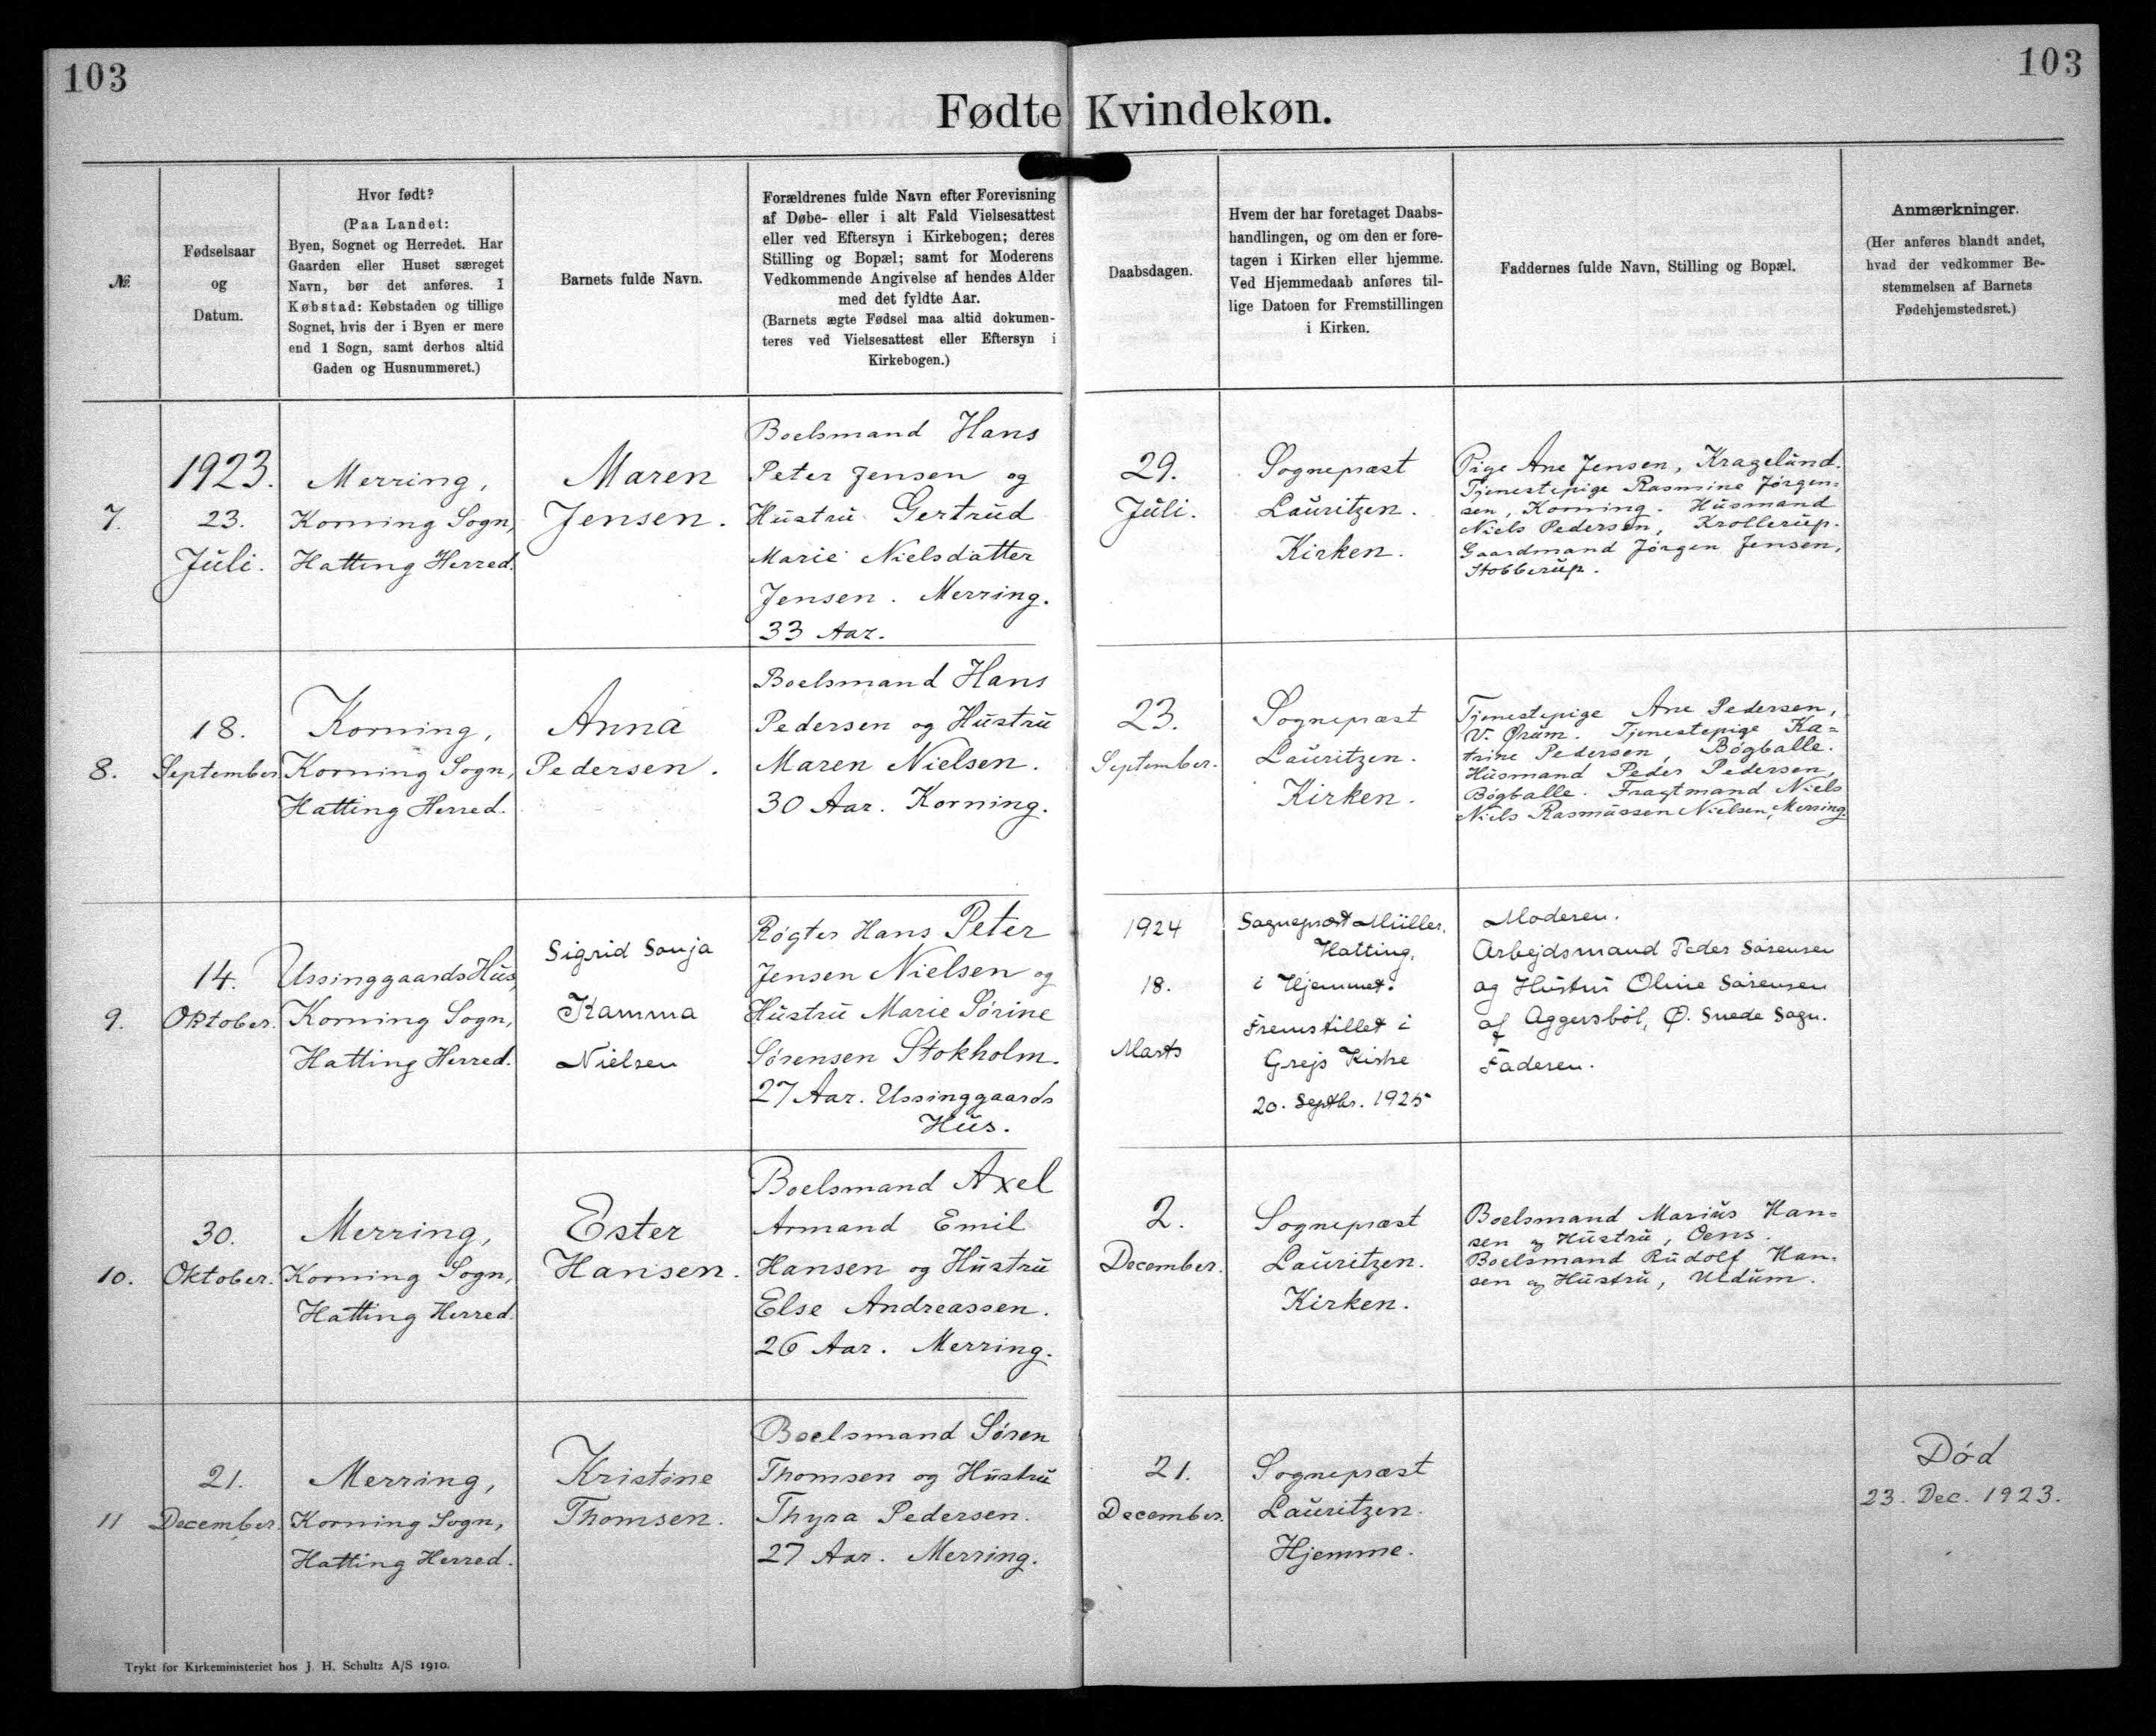 103
103
Fødte Kvindekøn.
№
Fødselsaar
og
Datum.
Hvor født?
(Paa Landet:
Byen, Sognet og Herredet. Har
Gaarden eller Huset særeget
Navn, bør det anføres. I
Købstad: Købstaden og tillige
Sognet, hvis der i Byen er mere
end 1 Sogn, samt derhos altid
Gaden og Husnummeret.)
Barnets fulde Navn.
Forældrenes fulde Navn efter Forevisning
af Døbe- eller i alt Fald Vielsesattest
eller ved Eftersyn i Kirkebogen; deres
Stilling og Bopæl; samt for Moderens
Vedkommende Angivelse af hendes Alder
med det fyldte Aar.
(Barnets ægte Fødsel maa altid dokumen-
teres ved Vielsesattest eller Eftersyn i
Kirkebogen.)
Daabsdagen.
Hvem der har foretaget Daabs-
handlingen, og om den er fore-
tagen i Kirken eller hjemme.
Ved Hjemmedaab anføres til-
lige Datoen for Fremstillingen
i Kirken.
Faddernes fulde Navn, Stilling og Bopæl.
Anmærkninger.
(Her anføres blandt andet,
hvad der vedkommer Be-
stemmelsen af Barnets
Fødehjemstedsret.)
7.
1923.
23.
Juli.
Merring,
Korning Sogn,
Hatting Herred.
Maren
Jensen.
Boelsmand Hans
Peter Jensen og
Hustru Gertrud
Marie Nielsdatter
Jensen. Merring.
33 Aar.
29.
Juli.
Sognepræst
Lauritzen.
Kirken.
Pige Ane Jensen, Kragelund.
Tjenestepige Rasmine Jørgen=
sen, Korning. Husmand
Niels Pedersen, Krollerup.
Gaardmand Jørgen Jensen,
Stobberup.
8.
18.
September
Korning,
Korning Sogn,
Hatting Herred.
Anna
Pedersen.
Boelsmand Hans
Pedersen og Hustru
Maren Nielsen.
30 Aar. Korning.
23.
September.
Sognepræst
Lauritzen.
Kirken.
Tjenestepige Ane Pedersen,
V. Ørum. Tjenestepige Ka=
trine Pedersen, Bøgballe.
Husmand Peder Pedersen,
Bøgballe. Fragtmand Niels
Niels Rasmussen Nielsen, Merring.
9.
14.
Oktober.
Ussinggaards Hus,
Korning Sogn,
Hatting Herred.
Sigrid Sonja
Kamma
Nielsen
Røgter Hans Peter
Jensen Nielsen og
Hustru Marie Sørine
Sørensen Stokholm.
27 Aar. Ussinggaards
Hus.
1924
18.
Marts
Sognepræst Müller,
Hatting,
i Hjemmet.
Fremstillet i
Grejs Kirke
20. Septbr. 1925
Moderen.
Arbejdsmand Peder Sørensen
og Hustru Oline Sørensen
af Aggersbøl, Ø. Snede Sogn.
Faderen.
10.
30.
Oktober.
Merring,
Korning Sogn,
Hatting Herred.
Ester
Hansen.
Boelsmand Axel
Armand Emil
Hansen og Hustru
Else Andreassen.
26 Aar. Merring.
2.
December.
Sognepræst
Lauritzen.
Kirken.
Boelsmand Marius Han=
sen og Hustru, Oens.
Boelsmand Rudolf Han=
sen og Hustru, Uldum.
11
21.
December.
Merring,
Korning Sogn,
Hatting Herred.
Kristine
Thomsen.
Boelsmand Søren
Thomsen og Hustru
Thyra Pedersen.
27 Aar. Merring.
21.
December.
Sognepræst
Lauritzen.
Hjemme.
Død
23. Dec. 1923.
Trykt for Kirkeministeriet hos J. H. Schultz A/S 1910.